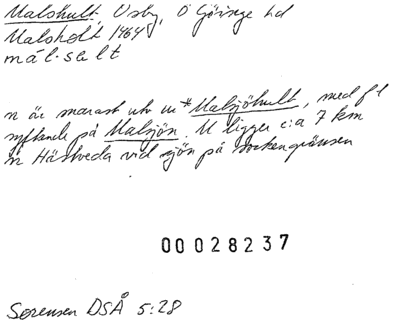 Malshult, Osby, Ö Göinge hd
Malsholt 1464
mál-salt
n är snarast utv ur *Malsjöhult, med f-l
syftande på Malsjön. M ligger c:a 7 km
n Hästveda vid sjön på sockengränsen
00028237
Sørensen DSÅ 5:28